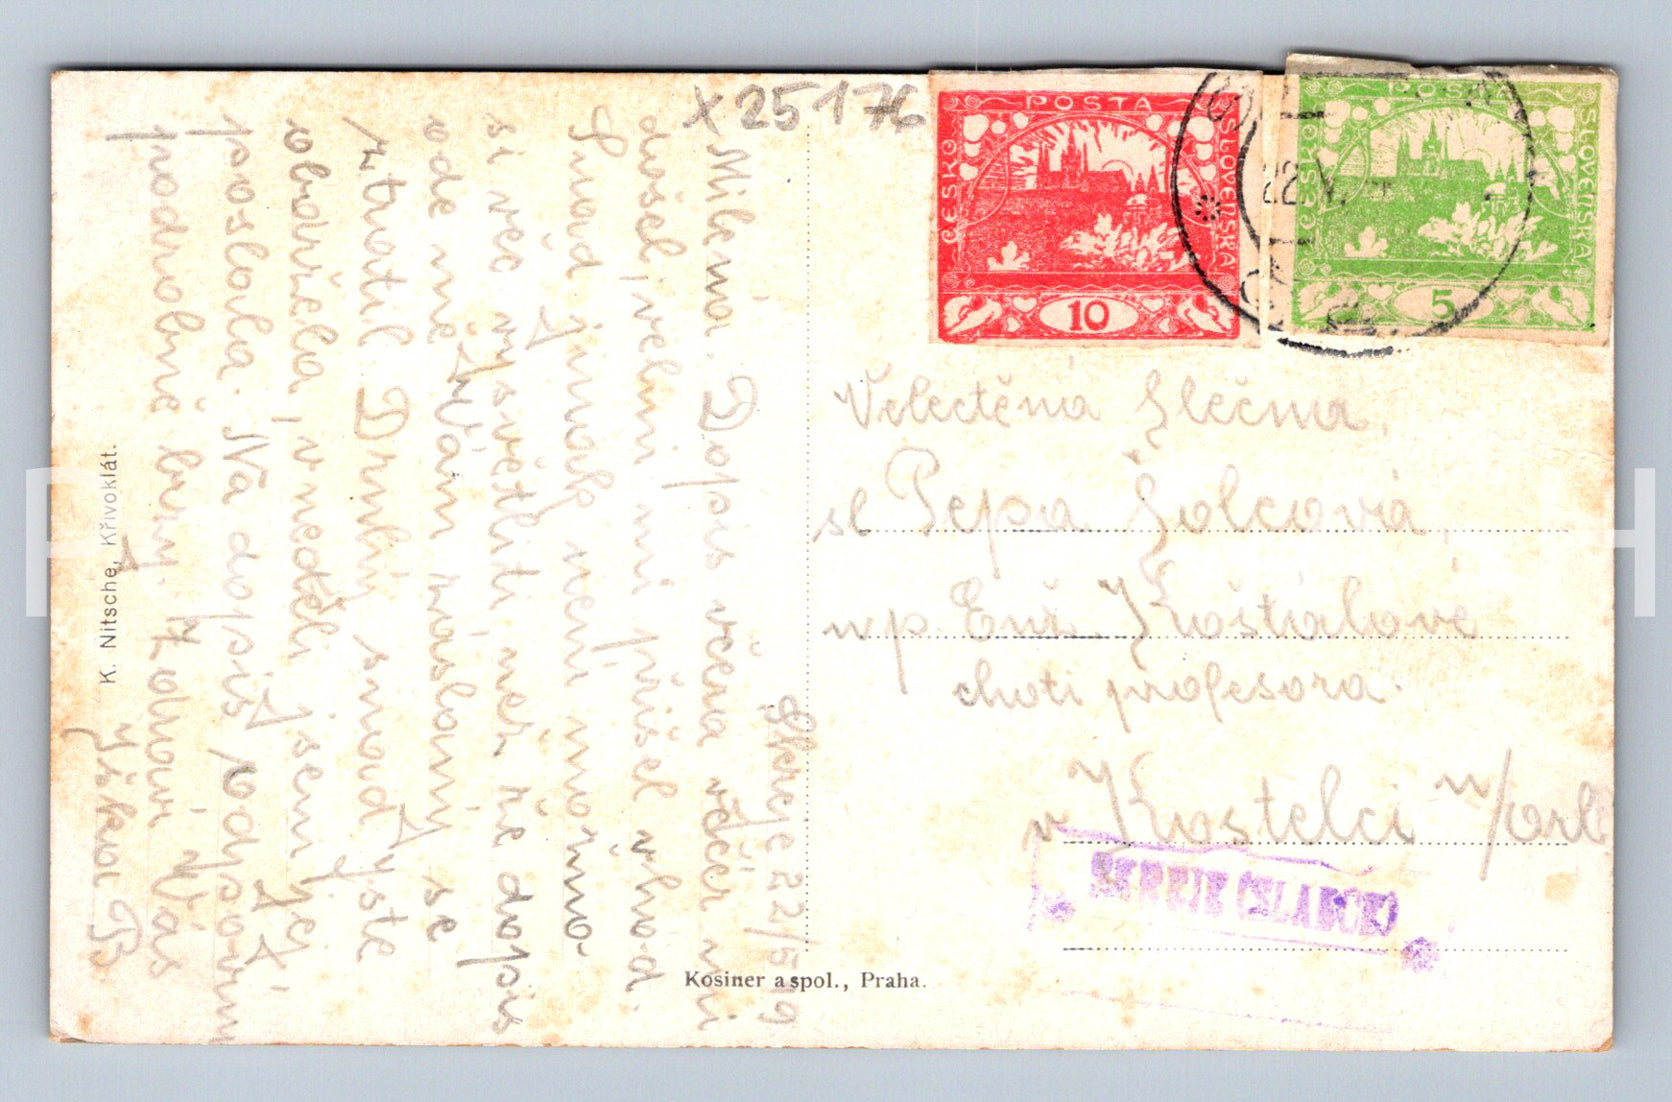 x 25176
POSTA
ČESKO
SLOVENSKÁ
10
POSTA
ČESKO
SLOVENSKÁ
5
22.V.
Skreje 22/5 19
Milená. Dopis včera večer mi
došel, velmi mi přišel vhod.
Snad jinak není možno
si věc vysvětliti než že dopis
ode mne Vám záslaný se
ztratil Druhý snad jste
obdržela, v neděli jsem jej
poslala. Na dopis odpovím
podrobně brzy. Zdraví Vás
Velectěná Slečna,
sl Pepa Šolcová,
wp. Košťálové
choti profesora.
v Kostelci n/Orl
SKREJE (SLABCE)
K. Nitsche, Křivoklát.
Kosiner a spol., Praha.